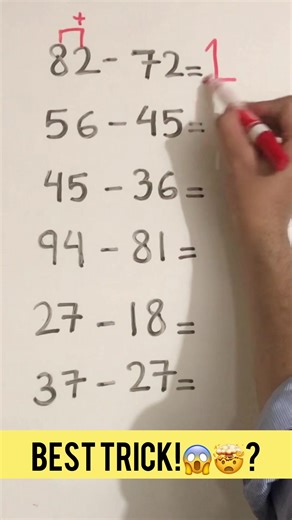 +
82 - 72 = 1
56 - 45 =
45 - 36 =
94 - 81 =
27 - 18 =
37 - 27 =
BEST TRICK!😱🤯?